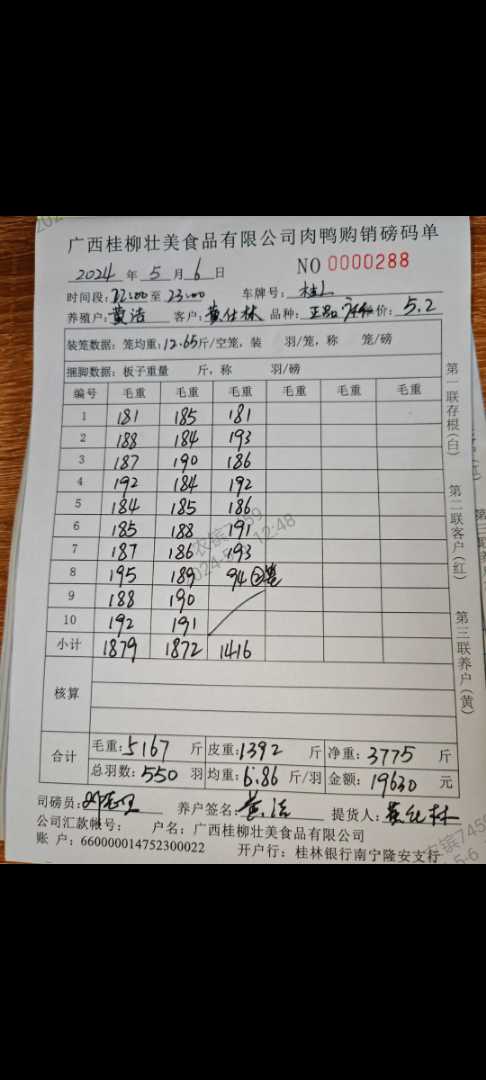 广西桂柳壮美食品有限公司肉鸭购销磅码单
2024 年 5 月 6 日 NO 0000288
时间段: 22:00 至 23:00 车牌号: 桂A
养殖户: 黄浩 客户: 黄仕林 品种: 正品 价: 5.2
装笼数据: 笼均重: 12.65 斤/空笼, 装 羽/笼, 称 笼/磅
捆脚数据: 板子重量 斤, 称 羽/磅
编号 毛重 毛重 毛重 毛重 毛重 毛重
1 181 185 181
2 188 184 193
3 187 190 186
4 192 184 192
5 184 185 186
6 185 188 191
7 187 186 193
8 195 189 94 ②笼
9 188 190
10 192 191
小计 1879 1872 1416
核算
合计 毛重: 5167 斤 皮重: 1392 斤 净重: 3775 斤
总羽数: 550 羽 均重: 6.86 斤/羽 金额: 19630 元
司磅员: 养户签名: 黄浩 提货人: 黄仕林
公司汇款帐号: 户名: 广西桂柳壮美食品有限公司
账 户: 660000014752300022 开户行: 桂林银行南宁隆安支行
第一联存根(白)
第二联客户(红)
第三联养户(黄)
农镔7459
12:48